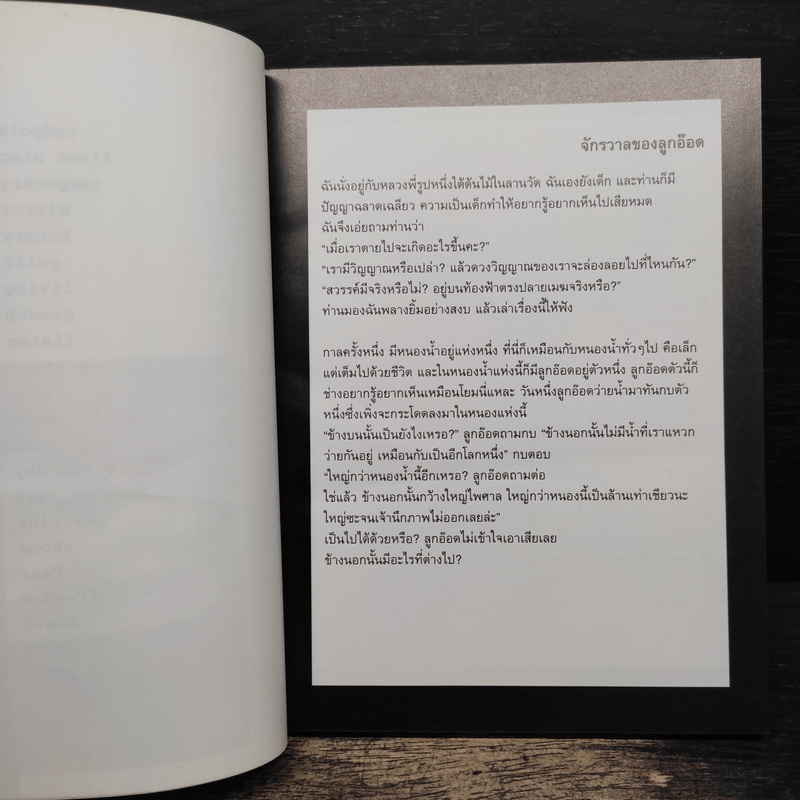 จักรวาลของลูกอ๊อด
ฉันนั่งอยู่กับหลวงพี่รูปหนึ่งใต้ต้นไม้ในลานวัด ฉันเองยังเด็ก และท่านก็มี
ปัญญาฉลาดเฉลียว ความเป็นเด็กทำให้อยากรู้อยากเห็นไปเสียหมด
ฉันจึงเอ่ยถามท่านว่า
“เมื่อเราตายไปจะเกิดอะไรขึ้นคะ?”
“เรามีวิญญาณหรือเปล่า? แล้วดวงวิญญาณของเราจะล่องลอยไปที่ไหนกัน?”
“สวรรค์มีจริงหรือไม่? อยู่บนท้องฟ้าตรงปลายเมฆจริงหรือ?”
ท่านมองฉันพลางยิ้มอย่างสงบ แล้วเล่าเรื่องนี้ให้ฟัง
กาลครั้งหนึ่ง มีหนองน้ำอยู่แห่งหนึ่ง ที่นี่ก็เหมือนกับหนองน้ำทั่วๆไป คือเล็ก
แต่เต็มไปด้วยชีวิต และในหนองน้ำแห่งนี้ก็มีลูกอ๊อดอยู่ตัวหนึ่ง ลูกอ๊อดตัวนี้ก็
ช่างอยากรู้อยากเห็นเหมือนโยมนี่แหละ วันหนึ่งลูกอ๊อดว่ายน้ำมาทันกบตัว
หนึ่งซึ่งเพิ่งจะกระโดดลงมาในหนองแห่งนี้
“ข้างบนนั้นเป็นยังไงเหรอ?” ลูกอ๊อดถามกบ “ข้างนอกนั้นไม่มีน้ำที่เราแหวก
ว่ายกันอยู่ เหมือนกับเป็นอีกโลกหนึ่ง” กบตอบ
“ใหญ่กว่าหนองน้ำนี้อีกเหรอ? ลูกอ๊อดถามต่อ
ใช่แล้ว ข้างนอกนั้นกว้างใหญ่ไพศาล ใหญ่กว่าหนองนี้เป็นล้านเท่าเชียวนะ
ใหญ่ซะจนเจ้านึกภาพไม่ออกเลยล่ะ”
เป็นไปได้ด้วยหรือ? ลูกอ๊อดไม่เข้าใจเอาเสียเลย
ข้างนอกนั้นมีอะไรที่ต่างไป?